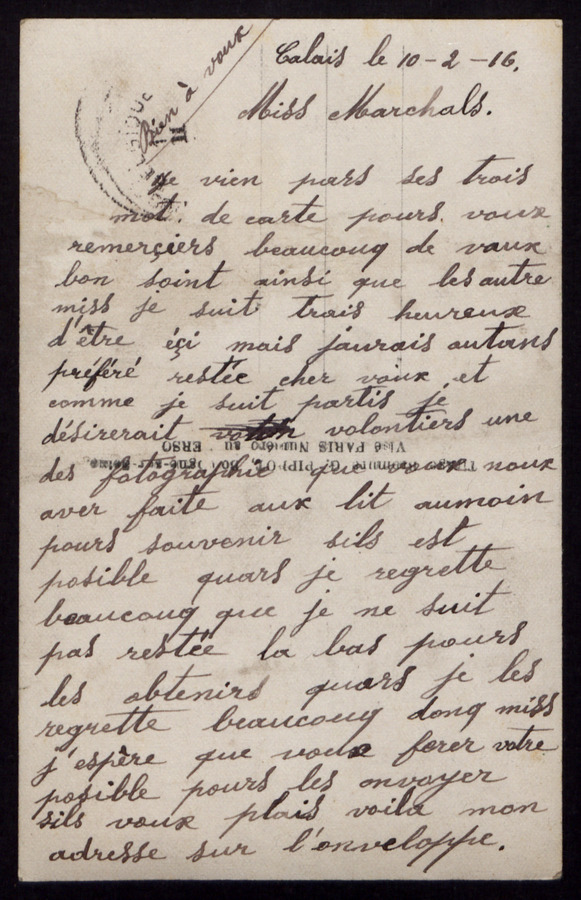 Bien à voux
Calais le 10-2-16.
Miss Marchals.
Je vien pars ses trois
mot. de carte pours voux
remerçiers beaucoug de vaux
bon soint ainsi que les autre
miss je suit trais heureux
d'être éçi mais j'aurais autans
préféré restée cher voux et
comme je suit partis je
désirerait volontiers une
des fotographie que noux
aver faite aux lit aumoin
pours souvenir sils est
posible quars je regrette
beaucoug que je ne suit
pas restée la bas pours
les obtenirs quars je les
regrette beaucoug donq miss
j'espère que voux ferer votre
posible pours les envoyer
sils voux plais voila mon
adresse sur l'enveloppe.
Visé PARIS Numéro au VERSO